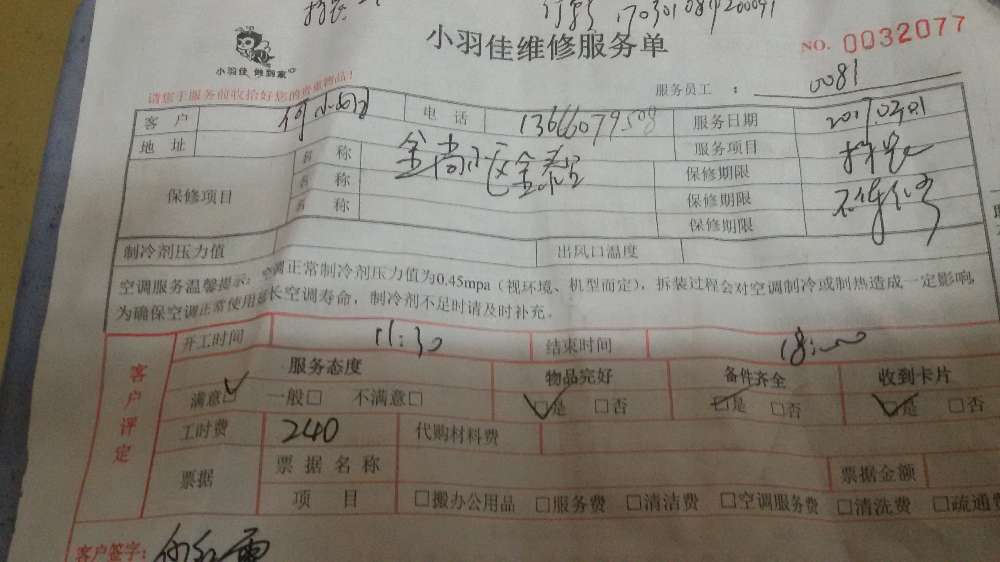 小羽佳维修服务单
NO. 0032077
小羽佳 做到家
请您于服务前收拾好您的贵重物品！
服务员工： 0081
客户 何 电话 13666079508 服务日期 2017.02.01
地址 金尚小区金泰 服务项目
保修项目 名称 保修期限
名称 保修期限
名称 保修期限
制冷剂压力值 出风口温度
空调服务温馨提示：空调正常制冷剂压力值为0.45mpa（视环境、机型而定），拆装过程会对空调制冷或制热造成一定影响，
为确保空调正常使用延长空调寿命，制冷剂不足时请及时补充。
客户评定
开工时间 11:30 结束时间 18:00
服务态度 物品完好 备件齐全 收到卡片
满意□ 一般□ 不满意□ □是 □否 □是 □否 □是 □否
工时费 240 代购材料费
票据 票据名称 票据金额
项目 □搬办公用品 □服务费 □清洁费 □空调服务费 □清洗费 □疏通费
客户签字：